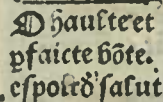 O haulteet
ꝑfaicte bõte.
espoird' salut